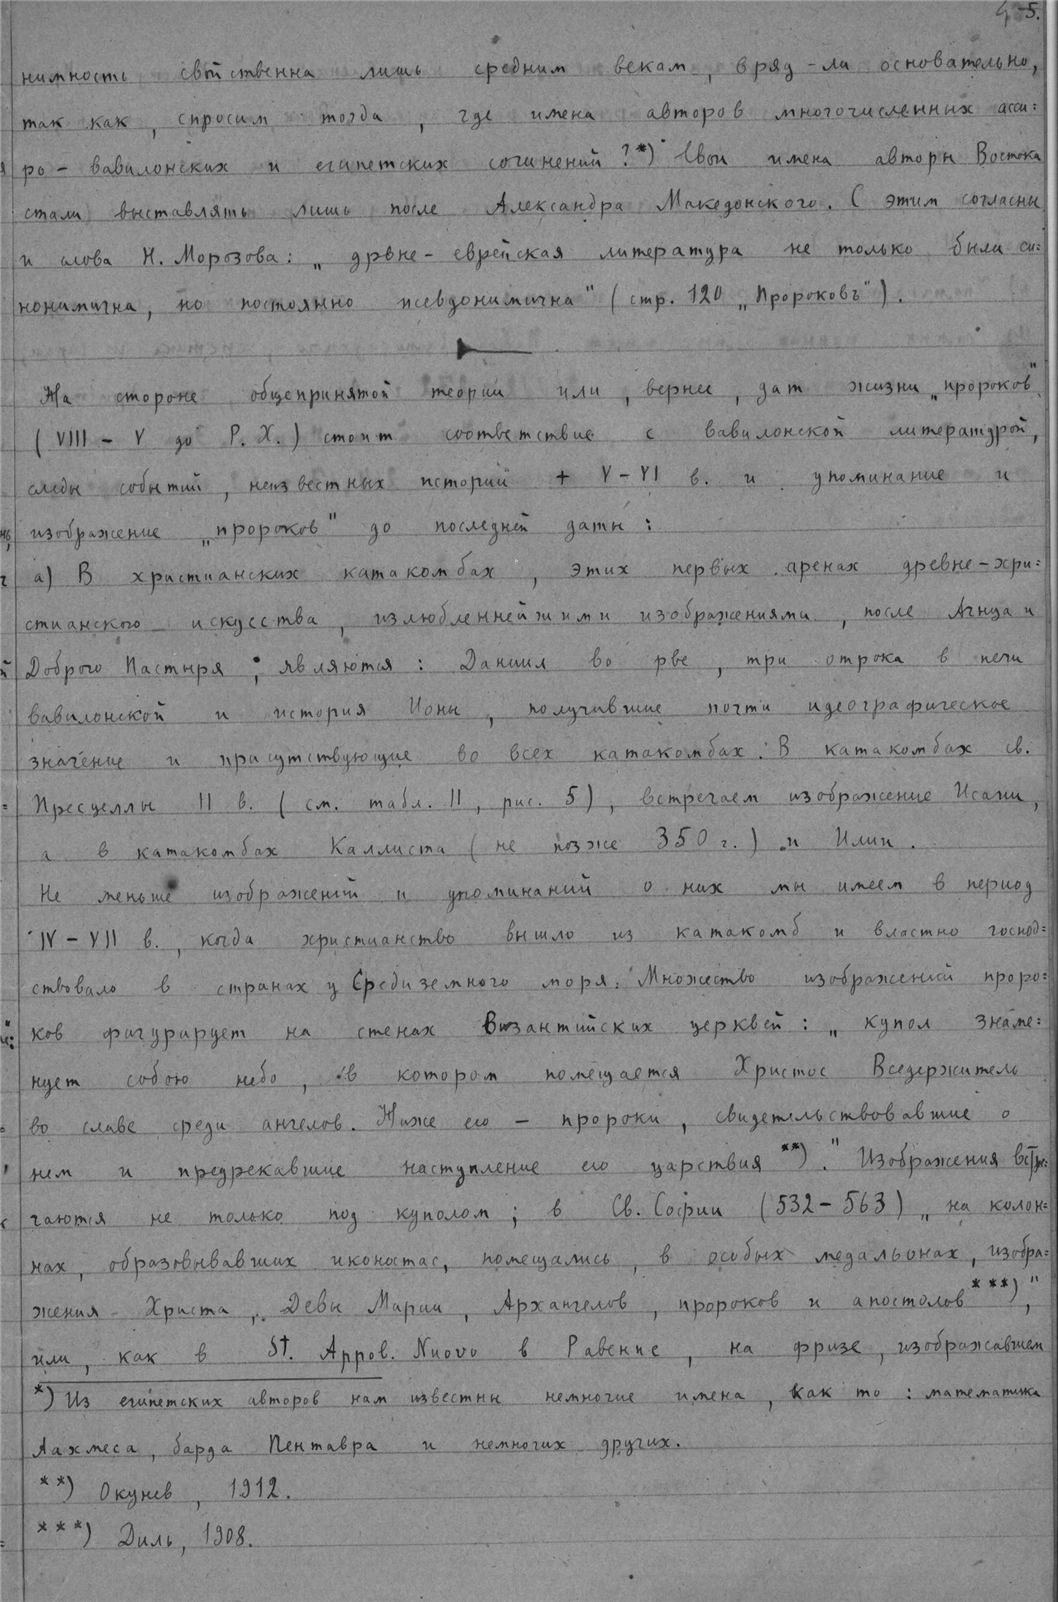 5.
нимность свойственна лишь средним векам, вряд-ли основательно,
так как, спросим тогда, где имена авторов многочисленных асси:
ро-вавилонских и египетских сочинений?*) Свои имена авторы Востока
стали выставлять лишь после Александра Македонского. С этим согласны
и слова Н. Морозова: „древне-еврейская литература не только была си:
нонимична, но постоянно псевдонимична" (стр. 120 „Пророковъ").
На стороне общепринятой теории или, вернее, дат жизни „пророков"
(VIII – V до Р. Х.) стоит соответствие с вавилонской литературой,
следы событий, неизвестных истории + V–VI в. и упоминание и
изображение „пророков" до последней даты:
а) В христианских катакомбах, этих первых аренах древне-хри:
стианского искусства, излюбленнейшими изображениями, после Агнца и
Доброго Пастыря, являются: Даниил во рве, три отрока в печи
вавилонской и история Ионы, получившие почти идеографическое
значение и присутствующие во всех катакомбах. В катакомбах св.
Пресцеллы II в. (см. табл. II, рис. 5), встречаем изображение Исаии,
а в катакомбах Каллиста (не позже 350 г.) и Илии.
Не меньше изображений и упоминаний о них мы имеем в период
IV–VII в., когда христианство вышло из катакомб и властно господ:
ствовало в странах у Средиземного моря. Множество изображений проро:
ков фигурирует на стенах Византийских церквей: „купол знаме:
нует собою небо, в котором помещается Христос Вседержитель
во славе среди ангелов. Ниже его – пророки, свидетельствовавшие о
нем и предрекавшие наступление его царствия **)." Изображения встре:
чаются не только под куполом; в Св. Софии (532–563) „на колон:
нах, образовывавших иконостас, помещались, в особых медальонах, изобра:
жения Христа, Девы Марии, Архангелов, пророков и апостолов ***),"
или, как в St. Appol. Nuovo в Равенне, на фризе, изображавшем
*) Из египетских авторов нам известны немногие имена, как то: математика
Аахмеса, барда Пентавра и немногих других.
**) Окунев, 1912.
***) Диль, 1908.